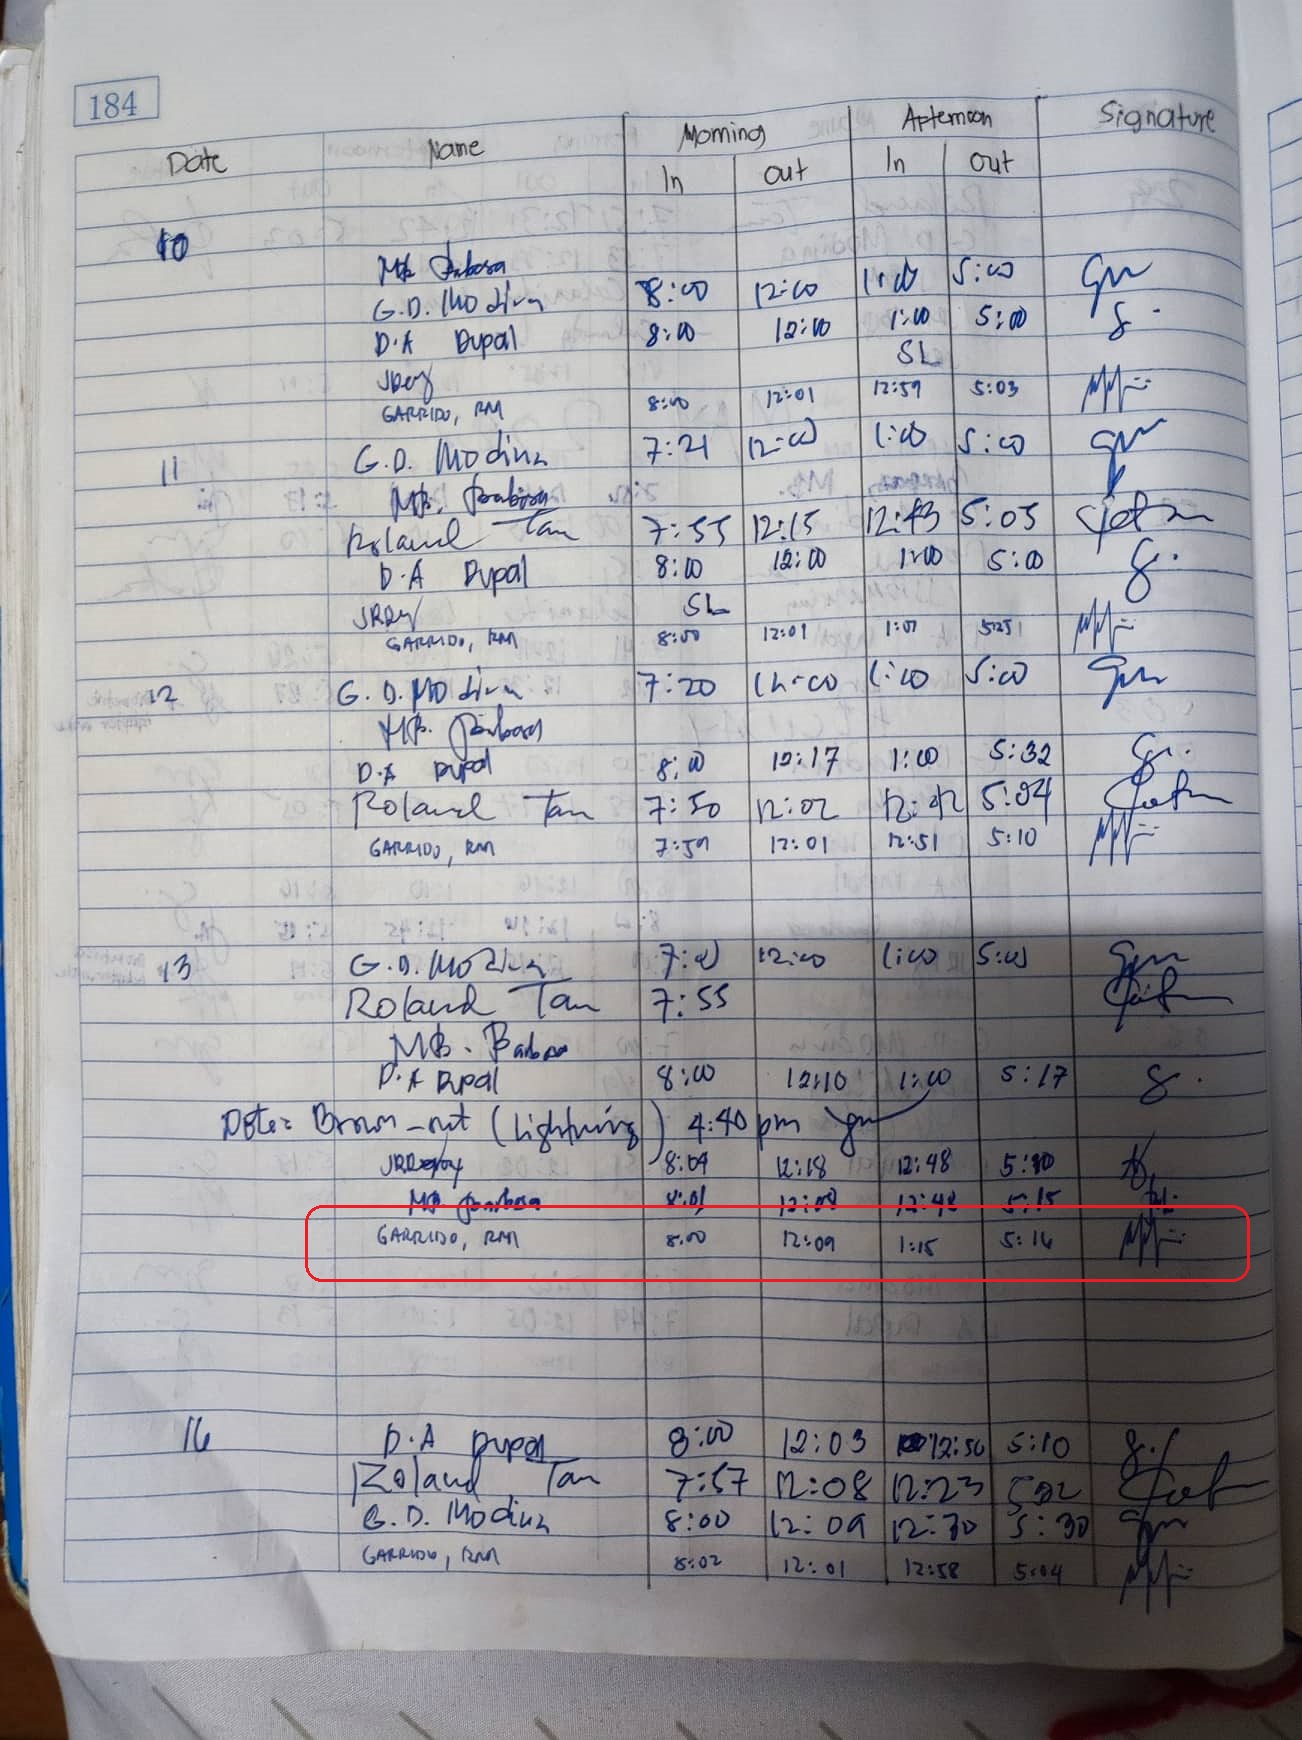 184
Date Name Morning Afternoon Signature
In Out In Out
10
MB Barbosa
G.D. Modina 8:00 12:00 1:00 5:00
D.A Dupal 8:00 12:00 1:00 5:00
SL
GARRIDO, RM 8:00 12:01 12:59 5:03
11 G.D. Modina 7:21 12:00 1:00 5:00
MB. Barbosa
Roland Tan 7:55 12:15 12:43 5:05
D.A Dupal 8:00 12:00 1:00 5:00
SL
GARRIDO, RM 8:00 12:01 1:01
12 G.D. Modina 7:20 12:00 1:00 5:00
MB. Barbosa
D.A Dupal 8:00 12:17 1:00 5:32
Roland Tan 7:50 12:02 12:42 5:04
GARRIDO, RM 7:59 12:01 12:51 5:10
13 G.D. Modina 7:00 12:00 1:00 5:00
Roland Tan 7:55
MB. Barbosa
D.A Dupal 8:00 12:10 1:00 5:17
Note: Brown-out (Lightning) 4:40 pm
8:09 12:18 12:48
MB Barbosa 8:01 12:48 5:15
GARRIDO, RM 8:00 12:09 1:15 5:16
16 D.A Dupal 8:00 12:03 12:50 5:10
Roland Tan 7:57 12:08 12:23
G.D. Modina 8:00 12:09 12:30 5:30
GARRIDO, RM 8:02 12:01 12:58 5:04